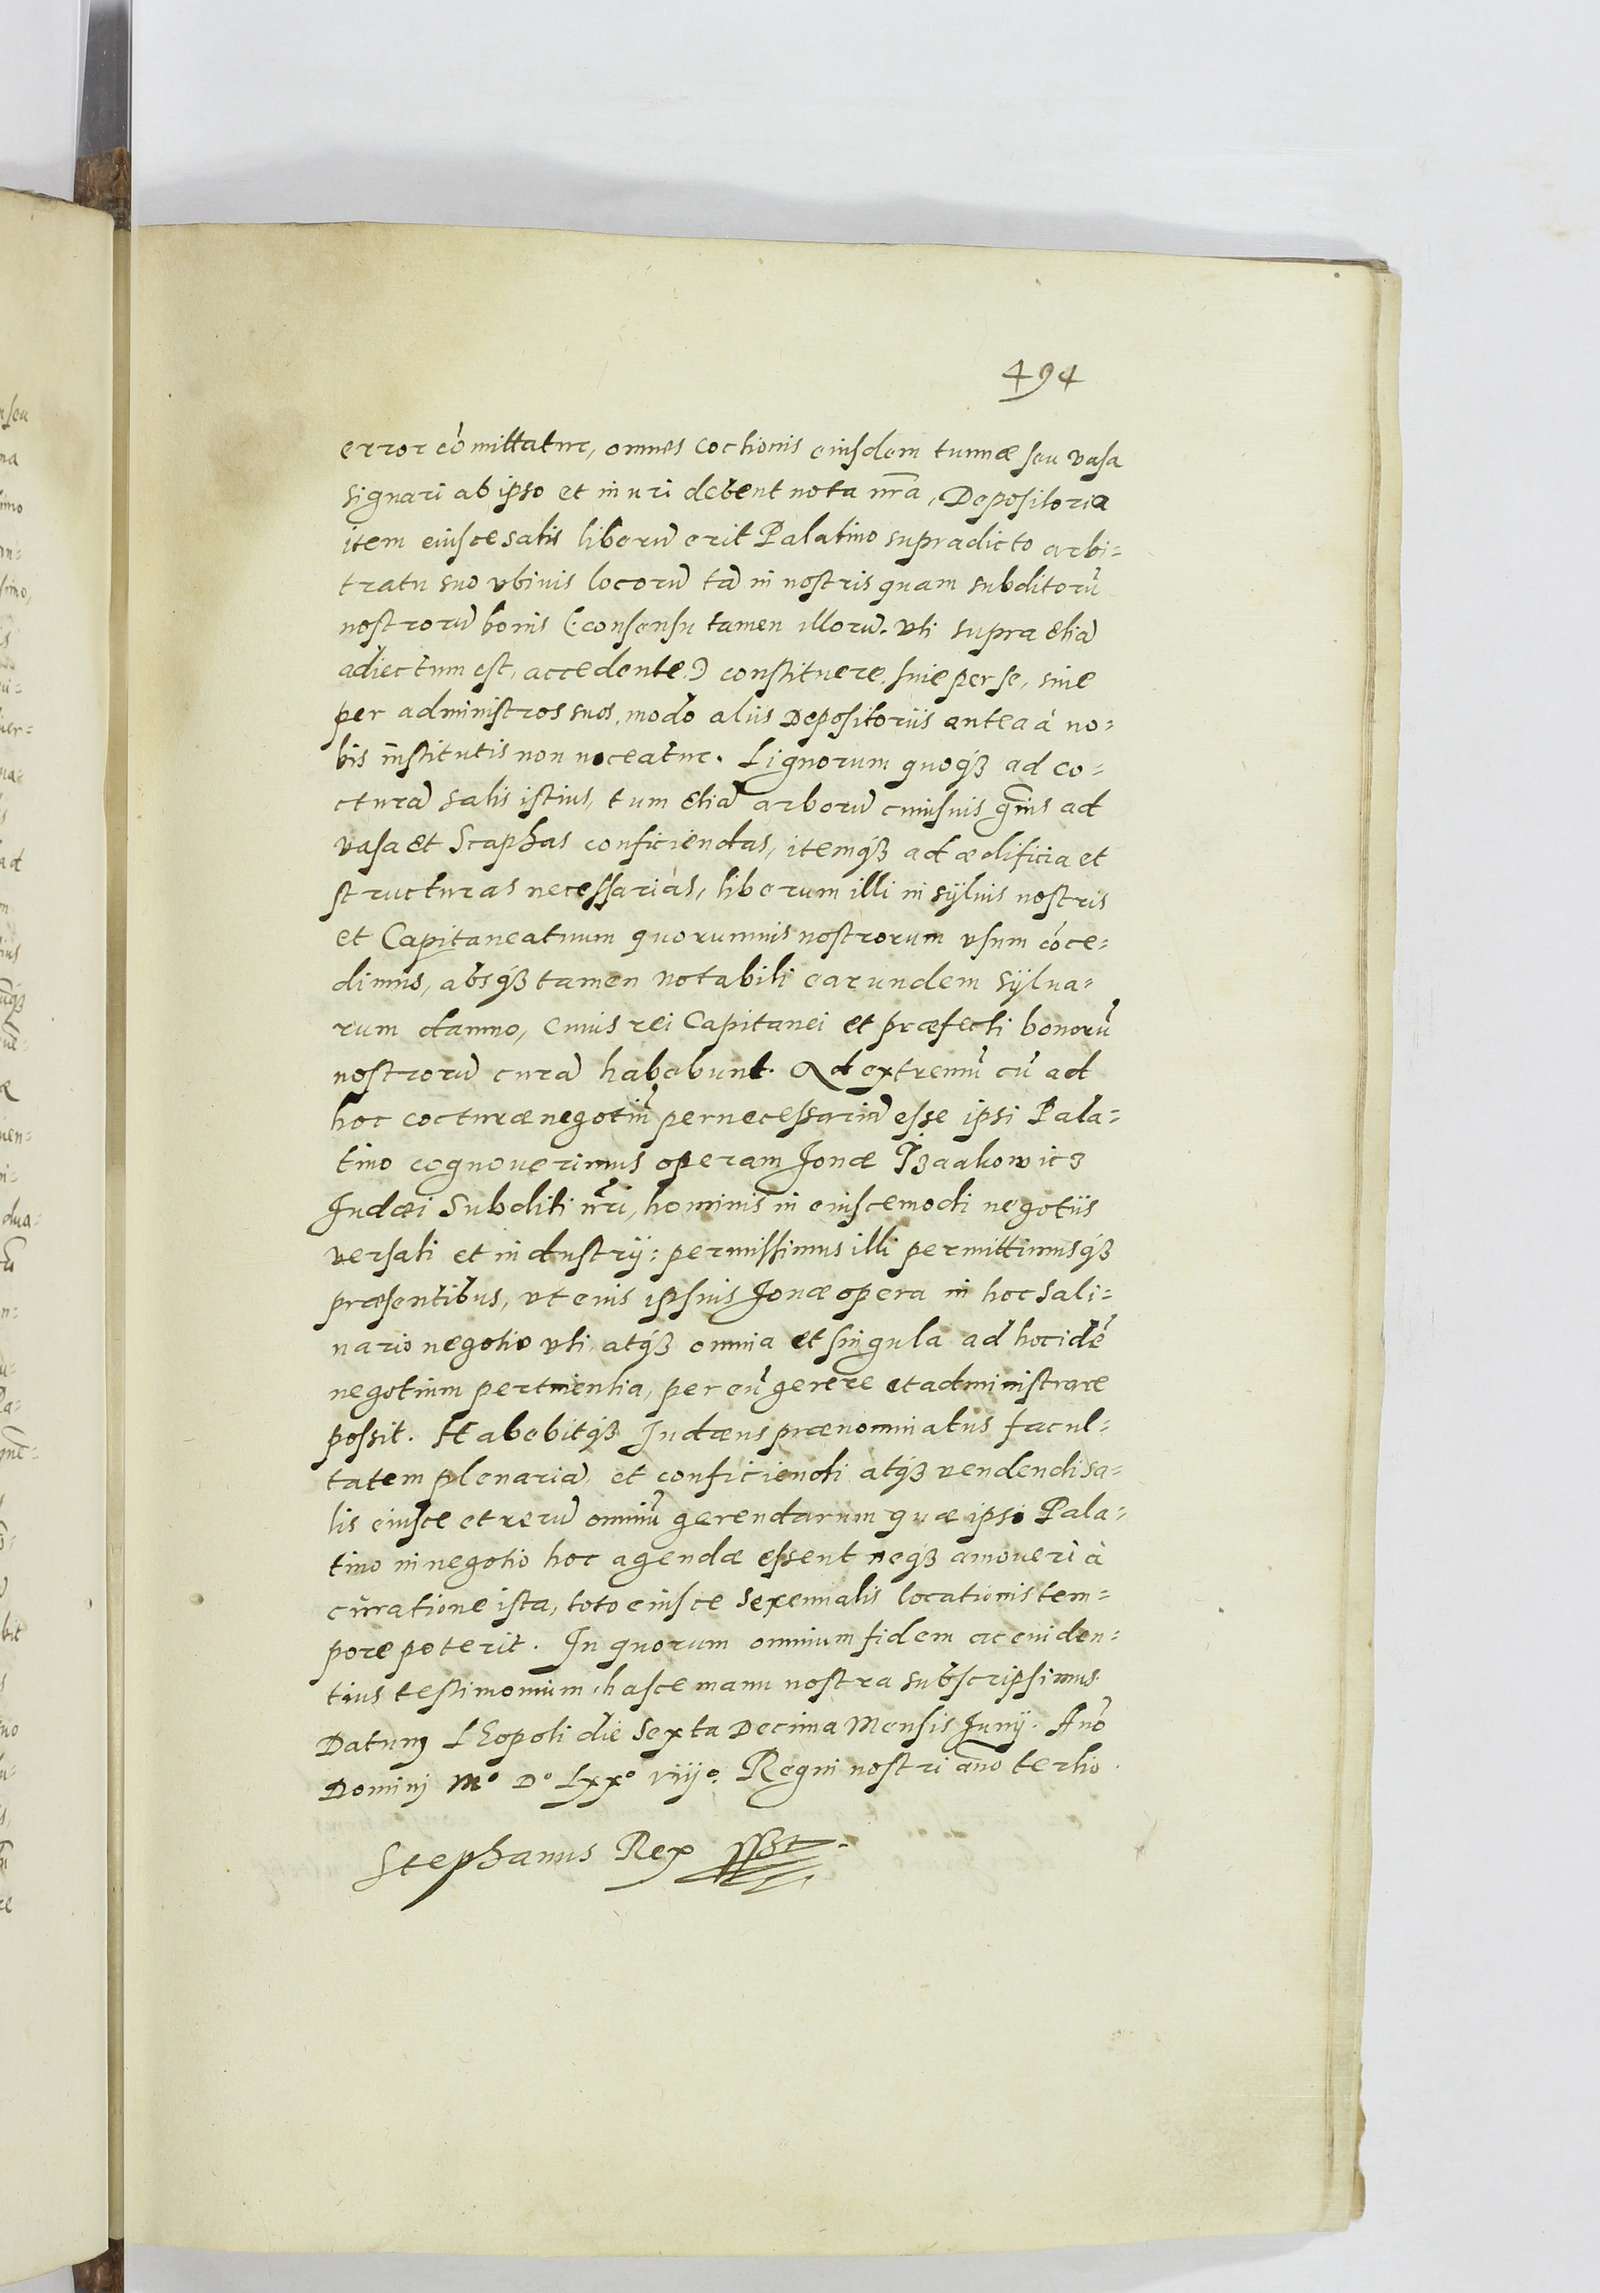 494
error cõmittatur, omnes coctionis eiusdem tunnæ seu vasa
signari ab ipso et inuri debent nota nr̃a, Depositoria
item eiusce salis liberũ erit Palatino supradicto arbi=
tratu suo vbiuis locorũ tã in nostris quam subditorũ
nostrorũ bonis (: consensu tamen illorũ. vti supra etiã
adiectum est, accedente :) constituere, siue per se, siue
per administros suos, modo aliis Depositoriis antea à no=
bis institutis non noceatur. Lignorum quoq́ꝫ ad co=
cturã salis istius, tum etiã arborũ cuiusuis gñis ad
vasa et Scaphas conficiendas, itemq́ꝫ ad ædificia et
structuras necessarias, liberum illi in syluis nostris
et Capitaneatuum quorumuis nostrorum vsum cõce=
dimus, absq́ꝫ tamen notabili earundem sÿlua=
rum damno, cuius rei Capitanei et præfecti bonorũ
nostrorũ curã habebunt. Ad extremũ cũ ad
hoc cocturæ negotiũ pernecessariũ esse ipsi Pala=
tino cognouerimus operam Jonæ Jzaakowicz
Judæi Subditi nr̃i, hominis in eiuscemodi negotiis
versati et industrÿ: permissimus illi permittimusq́ꝫ
præsentibus, vt eius ipsius Jonæ opera in hoc sali=
nario negotio vti, atq́ꝫ omnia et singula ad hoc idẽ
negotium pertinentia, per eũ gerere et administrare
possit. Habebitq́ꝫ Judæus prænominatus facul=
tatem plenariã, et conficiendi atq́ꝫ vendendi sa=
lis eiusce et rerũ omniũ gerendarum quæ ipsi Pala=
tino in negotio hoc agendæ essent neq́ꝫ amoueri à
curatione ista, toto eiusce sexennalis locationis tem=
pore poterit. In quorum omnium fidem ac euiden=
tius testimonium, hasce manu nostra subscripsimus
Datum LEopoli die Sexta Decima Mensis Junÿ. Año
Dominj Mº Dº Lxxº viijº. Regni nostri año tertio.
Stephanus Rex sspt